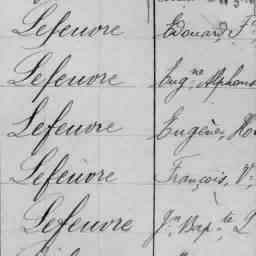 Lefeuvre Edouard, F
Lefeuvre Eugne Alphons
Lefeuvre Eugène, Ho
Lefeuvre François, V
Lefeuvre Jn Bapte L